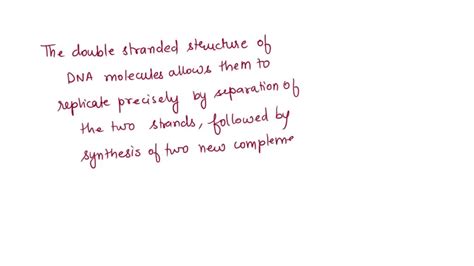 The double stranded structure of
DNA molecules allows them to
replicate precisely by separation of
the two strands, followed by
synthesis of two new compleme